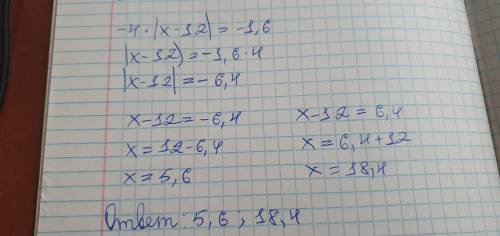 -4·|x-12|=-1,6
|x-12)=-1,6·4
|x-12|=-6,4
x-12=-6,4
x=12-6,4
x=5,6
x-12=6,4
x=6,4+12
x=18,4
Ответ: 5,6 ; 18,4